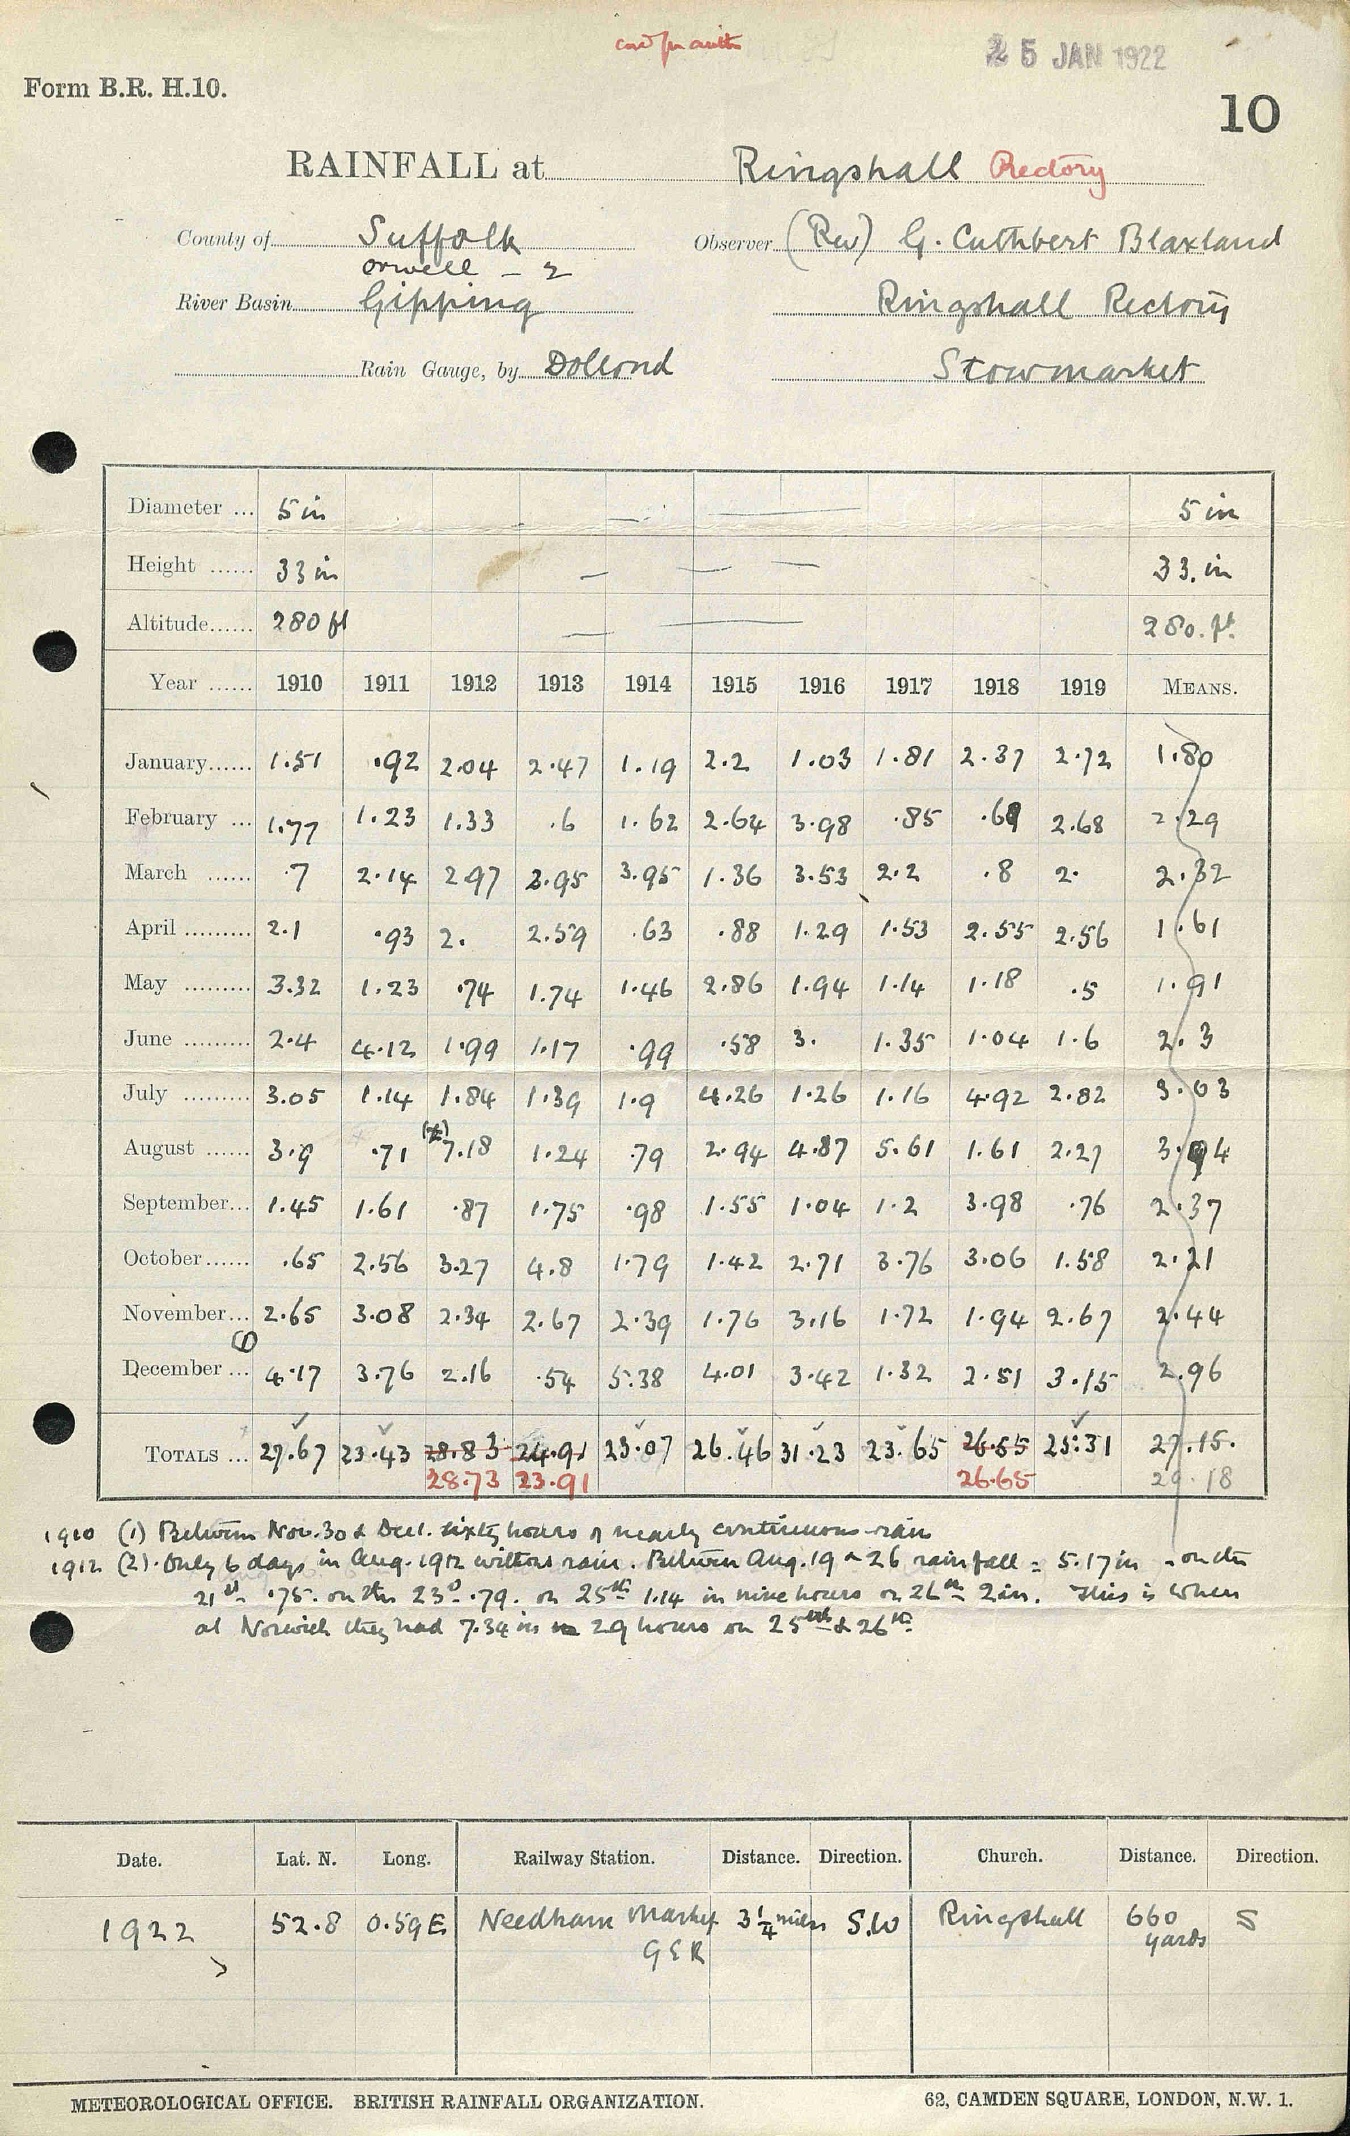 25 JAN 1922
Form B.R. H.10.
10
RAINFALL at Ringshall Rectory
County of Suffolk Observer (Rev) G. Cuthbert Blaxland
Orwell – 2
River Basin Gipping Ringshall Rectory
Rain Gauge, by Dollond Stowmarket
Diameter ... 5 in 5 in
Height ...... 33 in 33. in
Altitude...... 280 ft 280. ft.
Year ...... 1910 1911 1912 1913 1914 1915 1916 1917 1918 1919 MEANS.
January...... 1.51 .92 2.04 2.47 1.19 2.2 1.03 1.81 2.37 2.72 1.80
February ... 1.77 1.23 1.33 .6 1.62 2.64 3.98 .85 2.68 2.29
March ...... .7 2.14 2.97 2.95 3.95 1.36 3.53 2.2 .8 2. 2.32
April ......... 2.1 .93 2. 2.59 .63 .88 1.29 1.53 2.55 2.56 1.61
May ......... 3.32 1.23 .74 1.74 1.46 2.86 1.94 1.14 1.18 .5 1.91
June ......... 2.4 4.12 1.99 1.17 .99 .58 3. 1.35 1.04 1.6 2.3
July ......... 3.05 1.14 1.84 1.39 1.9 4.26 1.26 1.16 4.92 2.82 3.03
August ...... 3.9 .71 (2) 7.18 1.24 .79 2.94 4.87 5.61 1.61 2.27 3.94
September... 1.45 1.61 .87 1.75 .98 1.55 1.04 1.2 3.98 .76 2.37
October...... .65 2.56 3.27 4.8 1.79 1.42 2.71 3.76 3.06 1.58 2.21
November... 2.65 3.08 2.34 2.67 2.39 1.76 3.16 1.72 1.94 2.67 2.44
(1)
December ... 4.17 3.76 2.16 .54 5.38 4.01 3.42 1.32 2.51 3.15 2.96
TOTALS ... 27.67 23.43 28.83 24.91 23.07 26.46 31.23 23.65 26.55 25.31 27.15.
28.73 23.91 26.65 29.18
1910 (1) Between Nov. 30 & Dec 1. sixty hours of nearly continuous rain
1912 (2). Only 6 days in Aug. 1912 without rain. Between Aug. 19 & 26 rainfall = 5.17 in - on the
21st .75. on the 23d .79. on 25th 1.14 in nine hours on 26th 2 in. This is when
at Norwich they had 7.34 ins in 29 hours on 25th & 26th
Date. Lat. N. Long. Railway Station. Distance. Direction. Church. Distance. Direction.
1922 52.8 0.59 E Needham Market 3 1/4 miles S.W Ringshall 660 S
G E R yards
METEOROLOGICAL OFFICE. BRITISH RAINFALL ORGANIZATION. 62, CAMDEN SQUARE, LONDON, N.W. 1.